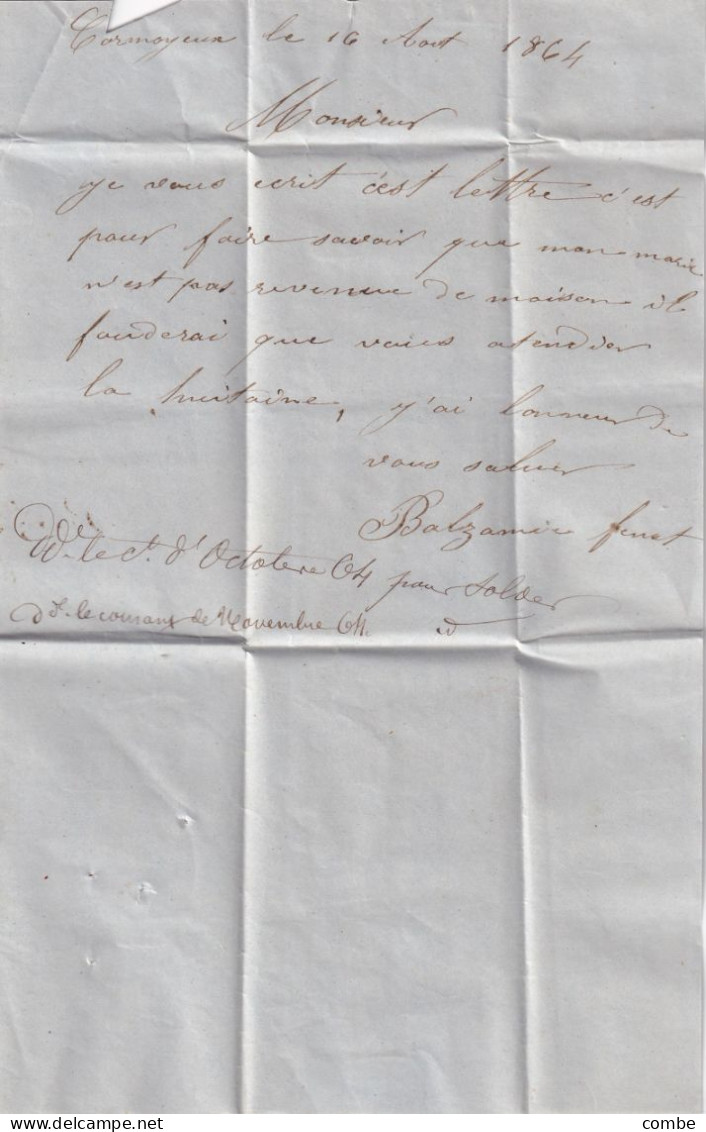 Cormoyeux le 16 Aout 1864
Monsieur
je vous ecrit c'est lettre c'est
pour faire savoir que mon marie
n'est pas revenue de maison il
fauderai que vous atendier
la huitaine, j'ai lonneur de
vous saluer
Balzamie finet
le ct. d'Octobre 64 pour solder
le courant de Novembre 64.
delcampe.net
combe